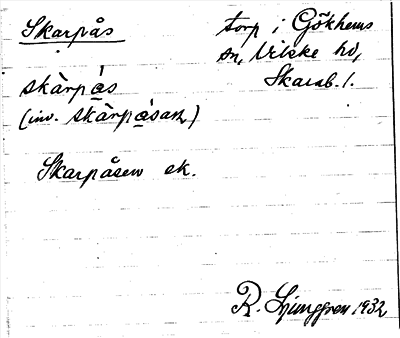 Skarpås
torp i Gökhems
sn, Vilske hd,
Skarab. l.
skàrpá̱s
(inv. skàrpá̱san)
Skarpåsen ek.
R. Ljunggren 1932